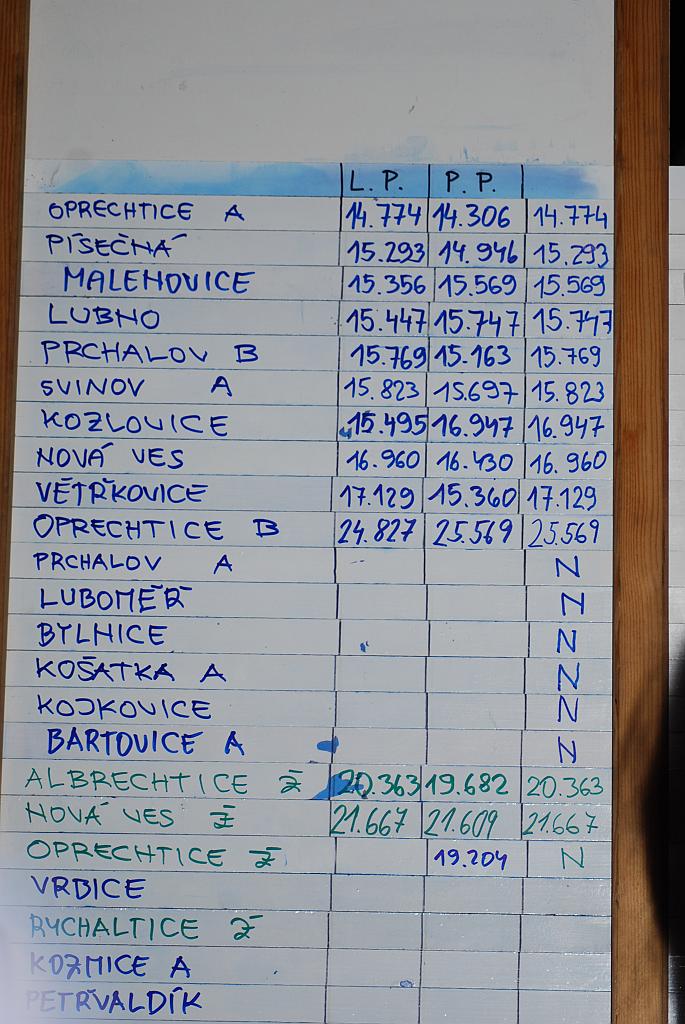 L. P. P. P.
OPRECHTICE A 14.774 14.306 14.774
PÍSEČNÁ 15.293 14.946 15.293
MALENOVICE 15.356 15.569 15.569
LUBNO 15.447 15.747 15.747
PRCHALOV B 15.769 15.163 15.769
SVINOV A 15.823 15.697 15.823
KOZLOVICE 15.495 16.947 16.947
NOVÁ VES 16.960 16.430 16.960
VĚTŘKOVICE 17.129 15.360 17.129
OPRECHTICE B 24.827 25.569 25.569
PRCHALOV A N
LUBOMĚŘ N
BYLNICE N
KOŠATKA A N
KOJKOVICE N
BARTOVICE A N
ALBRECHTICE Ž 20.363 19.682 20.363
NOVÁ VES Ž 21.667 21.609 21.667
OPRECHTICE Ž 19.204 N
VRBICE
RYCHALTICE Ž
KOZMICE A
PETŘVALDÍK